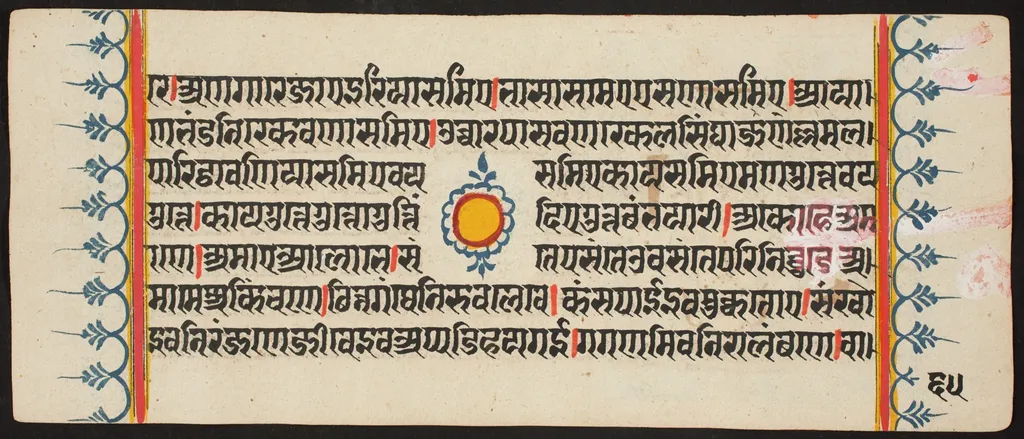 रि।अणगारेजाएइरियासमिए।भासासमिएएसणासमिए।आया
णभंडनिरकेवणासमिए।उच्चारपासवणरकेलसिंघाणजल्लमल
पारिठावणियासमिएवय समिएकायसमिएमणगुत्तेवय
गुत्ते।कायगुत्तेगुत्तेगुत्तिं दिएगुत्तबंभयारी।अकोहेअमा
णे।अमाएअलोभे।सं तेपसंतेउवसंतेपरिनिव्वुडेअ
णासवेअममेअकिंचणे।छिन्नगंथेनिरुवलेवे।कंसपाईइवमुक्कतोए।संखो
इवनिरंजणेजीवेइवअप्पडिहयगई।गगणमिवनिरालंबणे।वा
६५